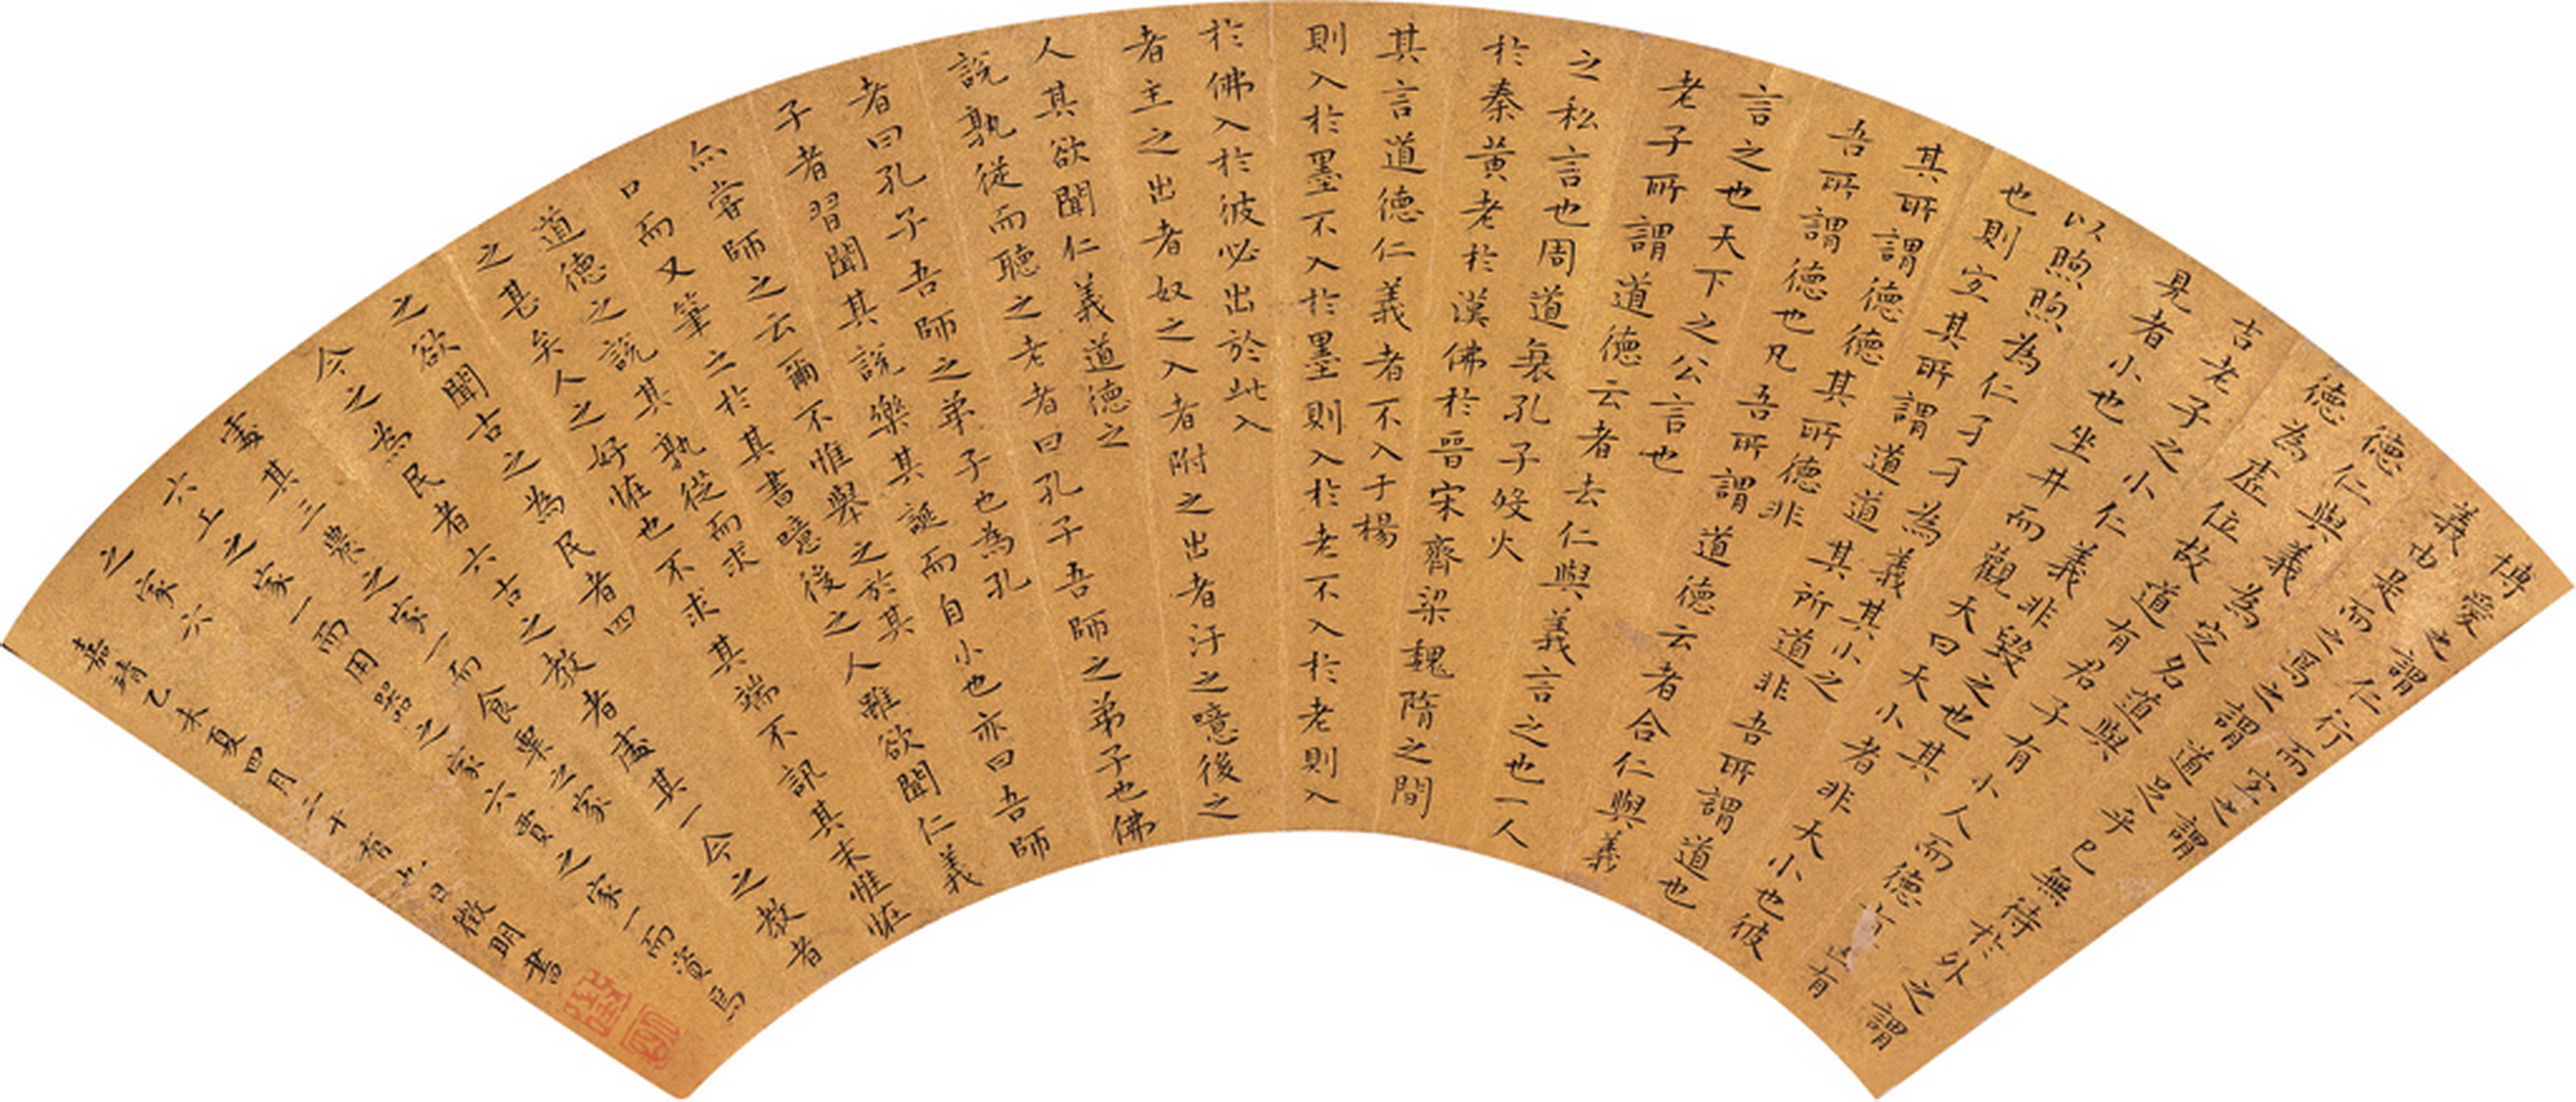 博愛之謂仁行而宜之謂
義由是而之焉之謂道足乎已無待於外之謂
德仁與義為定名道與
德為虛位故道有君子有小人而德有凶有
吉老子之小仁義非毀之也其
見者小也坐井而觀天曰天小者非天小也彼
以煦煦為仁孑孑為義其小之
也則宜其所謂道道其所道非吾所謂道也
其所謂德德其所德非
吾所謂德也凡吾所謂道德云者合仁與義
言之也天下之公言也
老子所謂道德云者去仁與義言之也一人
之私言也周道衰孔子歿火
於秦黃老於漢佛於晉宋齊梁魏隋之間
其言道德仁義者不入于楊
則入於墨不入於墨則入於老不入於老則入
於佛入於彼必出於此入
者主之出者奴之入者附之出者汙之噫後之
人其欲聞仁義道德之
說孰從而聽之老者曰孔子吾師之弟子也佛
者曰孔子吾師之弟子也為孔
子者習聞其說樂其誕而自小也亦曰吾師
亦嘗師之云爾不惟舉之於其
口而又筆之於其書噫後之人雖欲聞仁義
道德之說其孰從而求
之甚矣人之好恠也不求其端不訊其末惟恠
之欲聞古之為民者四
今之為民者六古之教者處其一今之教者
處其三農之家一而食粟之家
六工之家一而用器之家六賈之家一而資焉
之家六
嘉靖乙未夏四月二十有六日徵明書